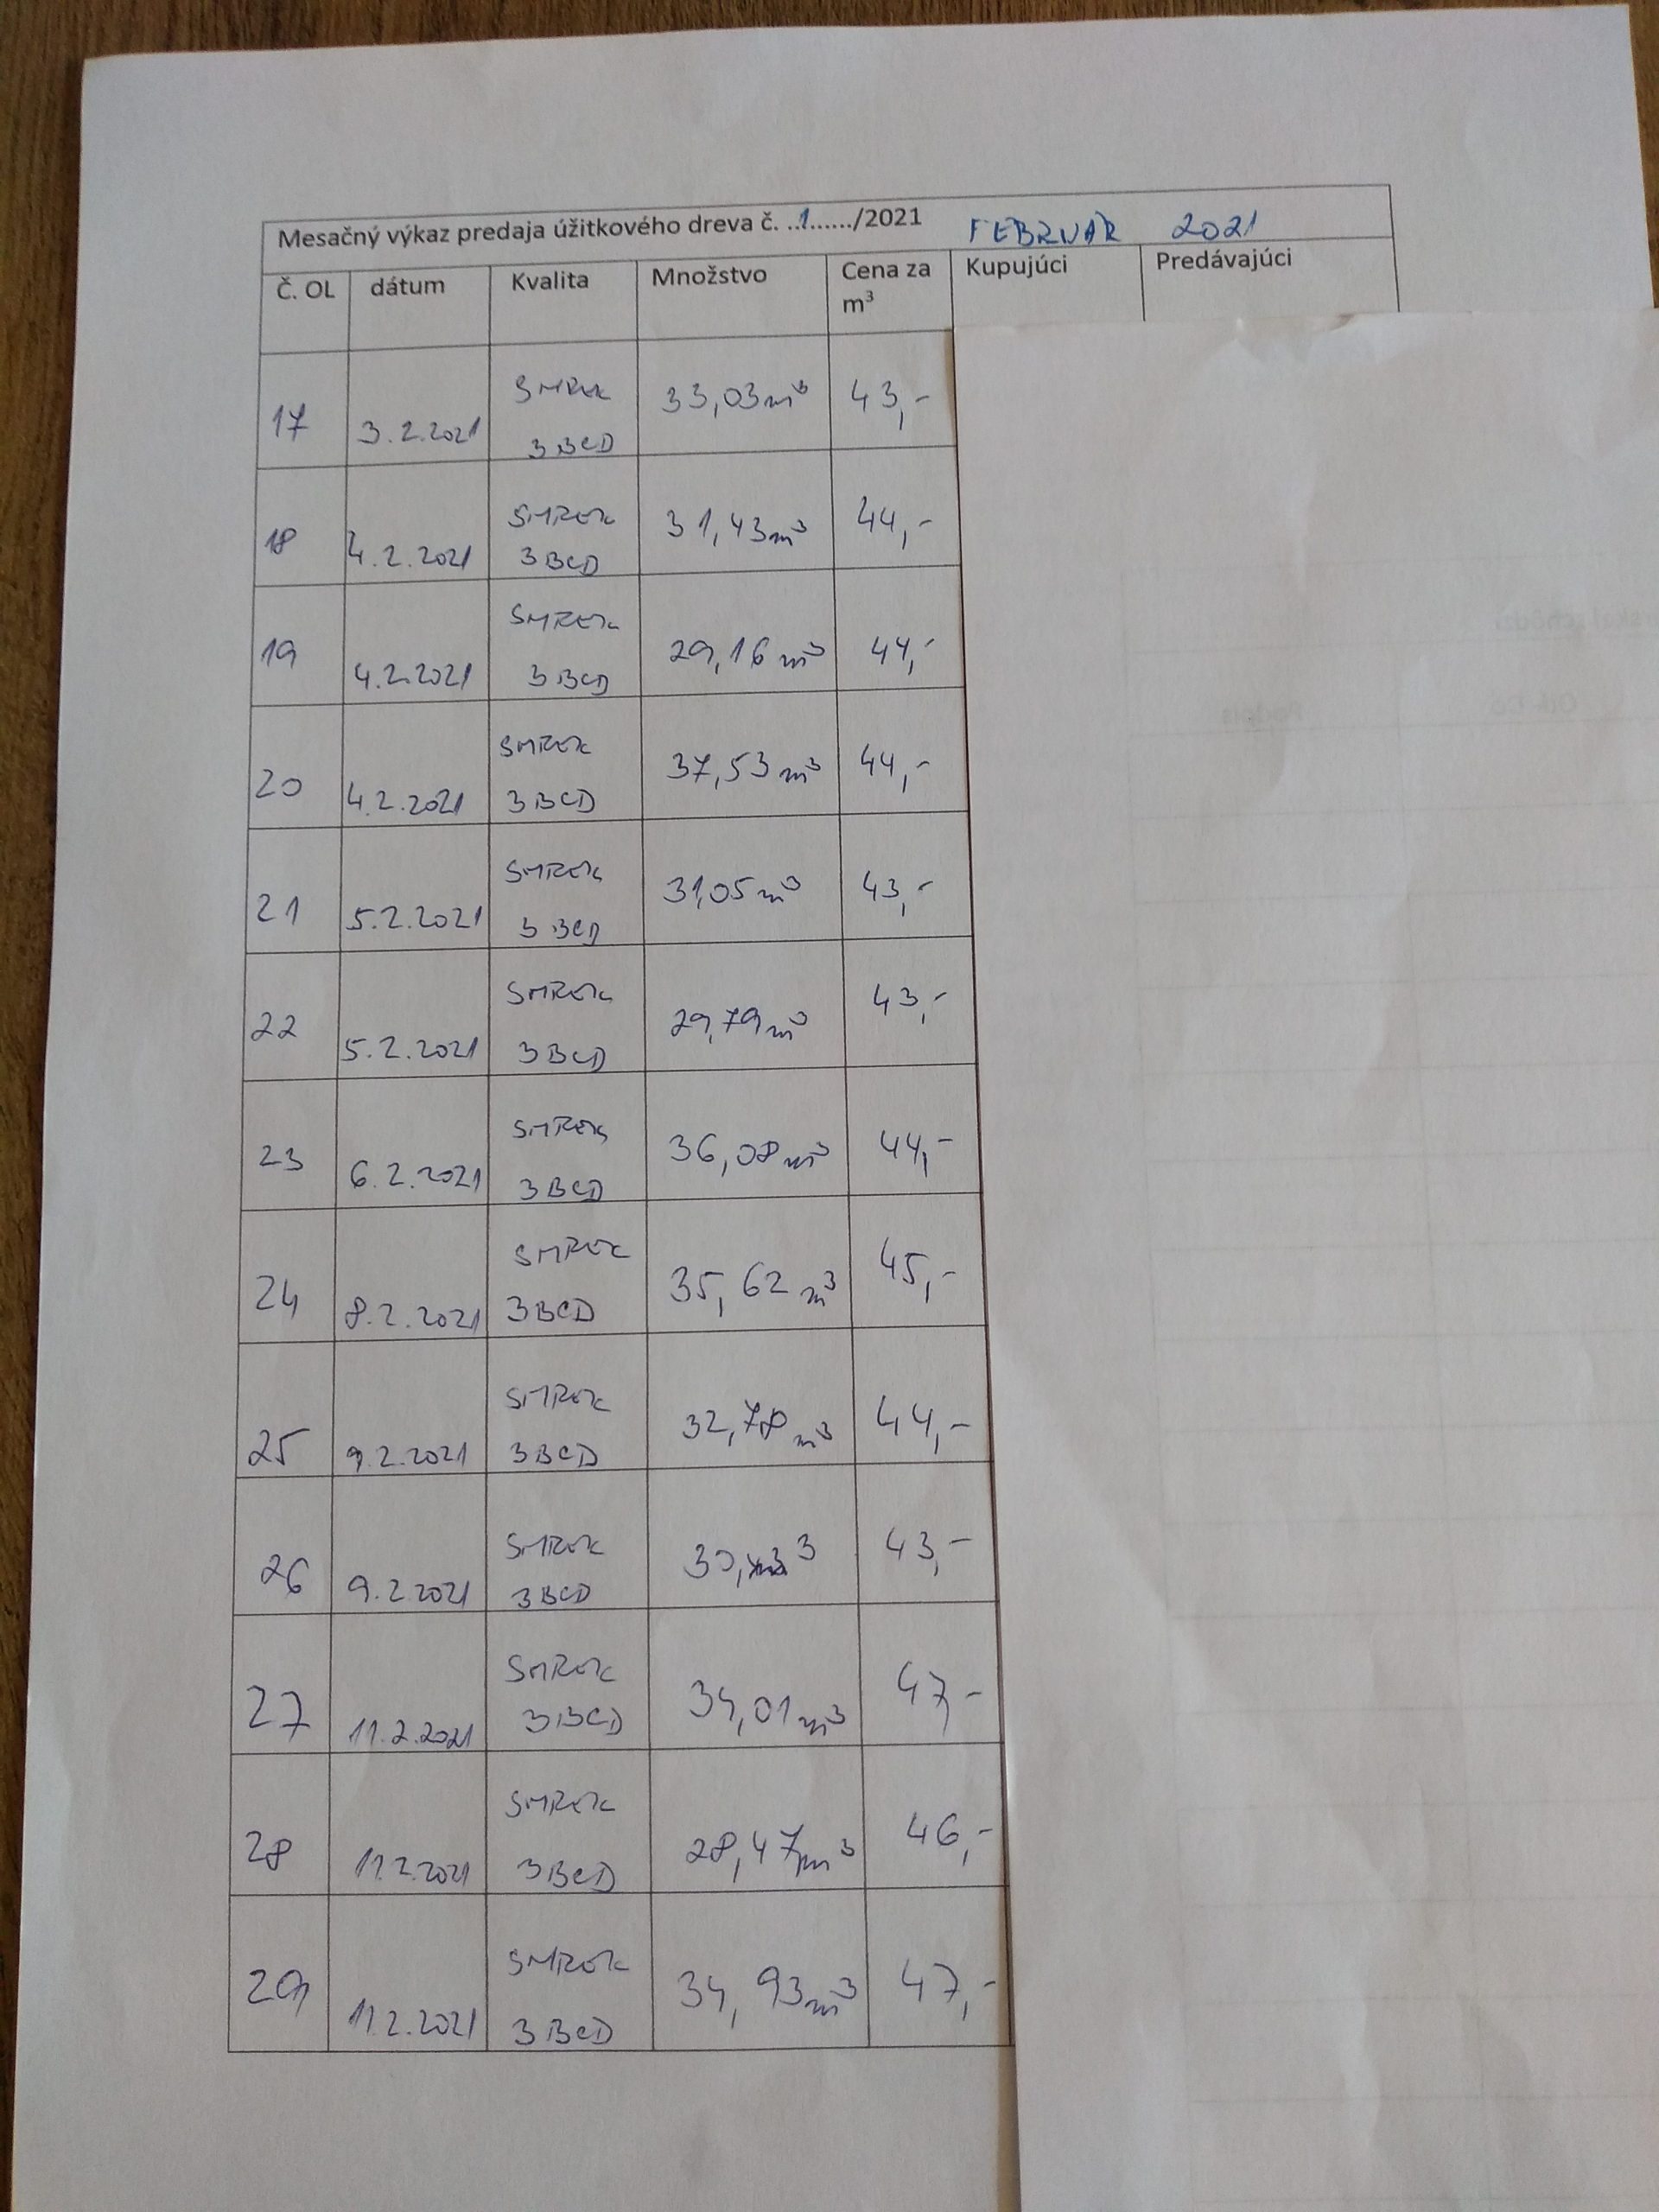 Mesačný výkaz predaja úžitkového dreva č. ..1....../2021 FEBRUAR 2021
Č. OL dátum Kvalita Množstvo Cena za m³ Kupujúci Predávajúci
17 3.2.2021 SMREK 3BCD 33,03m³ 43,-
18 4.2.2021 SMREK 3BCD 31,43m³ 44,-
19 4.2.2021 SMREK 3BCD 29,16m³ 44,-
20 4.2.2021 SMREK 3BCD 37,53m³ 44,-
21 5.2.2021 SMREK 3BCD 31,05m³ 43,-
22 5.2.2021 SMREK 3BCD 29,79m³ 43,-
23 6.2.2021 SMREK 3BCD 36,08m³ 44,-
24 8.2.2021 SMREK 3BCD 35,62m³ 45,-
25 9.2.2021 SMREK 3BCD 32,78m³ 44,-
26 9.2.2021 SMREK 3BCD 43,-
27 11.2.2021 SMREK 3BCD 34,01m³ 47,-
28 11.2.2021 SMREK 3BCD 28,47m³ 46,-
29 11.2.2021 SMREK 3BCD 34,93m³ 47,-